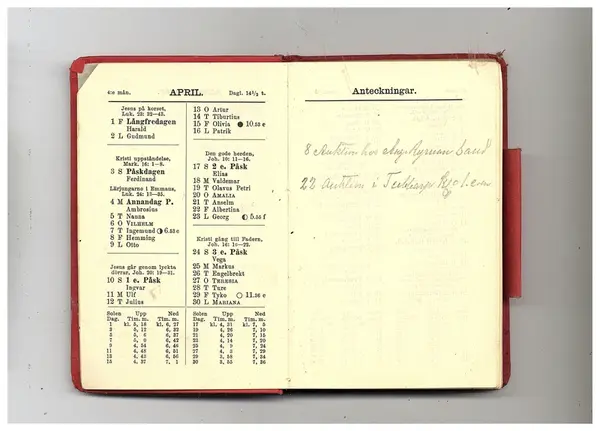 4:e mån. APRIL. Dagl. 14½ t.
Jesus på korset,
Luk. 23: 32–43.
1 F Långfredagen
Harald
2 L Gudmund
Kristi uppståndelse,
Mark. 16: 1–8.
3 S Påskdagen
Ferdinand
Lärjungarne i Emmaus,
Luk. 24: 13–35.
4 M Annandag P.
Ambrosius
5 T Nanna
6 O VILHELM
7 T Ingemund 6.53 e
8 F Hemming
9 L Otto
Jesus går genom lyckta
dörrar, Joh. 20: 19–31.
10 S 1 e. Påsk
Ingvar
11 M Ulf
12 T Julius
13 O Artur
14 T Tiburtius
15 F Olivia ● 10.53 e
16 L Patrik
Den gode herden,
Joh. 10: 11–16.
17 S 2 e. Påsk
Elias
18 M Valdemar
19 T Olavus Petri
20 O AMALIA
21 T Anselm
22 F Albertina
23 L Georg 5.55 f
Kristi gång till Fadern,
Joh. 16: 16–22.
24 S 3 e. Påsk
Vega
25 M Markus
26 T Engelbrekt
27 O TERESIA
28 T Ture
29 F Tyko ○ 11.36 e
30 L MARIANA
Solen Upp Ned
Dag. Tim. m. Tim. m.
1 kl. 5, 18 kl. 6, 27
3 5, 12 6, 32
5 5, 6 6, 37
7 5, 0 6, 42
9 4, 54 6, 46
11 4, 48 6, 51
13 4, 43 6, 56
15 4, 37 7, 1
Solen Upp Ned
Dag. Tim. m. Tim. m.
17 kl. 4, 31 kl. 7, 5
19 4, 26 7, 10
21 4, 20 7, 15
23 4, 14 7, 20
25 4, 9 7, 24
27 4, 3 7, 29
29 3, 58 7, 34
30 3, 55 7, 36
Anteckningar.
8 Auktion hos
22 Auktion i